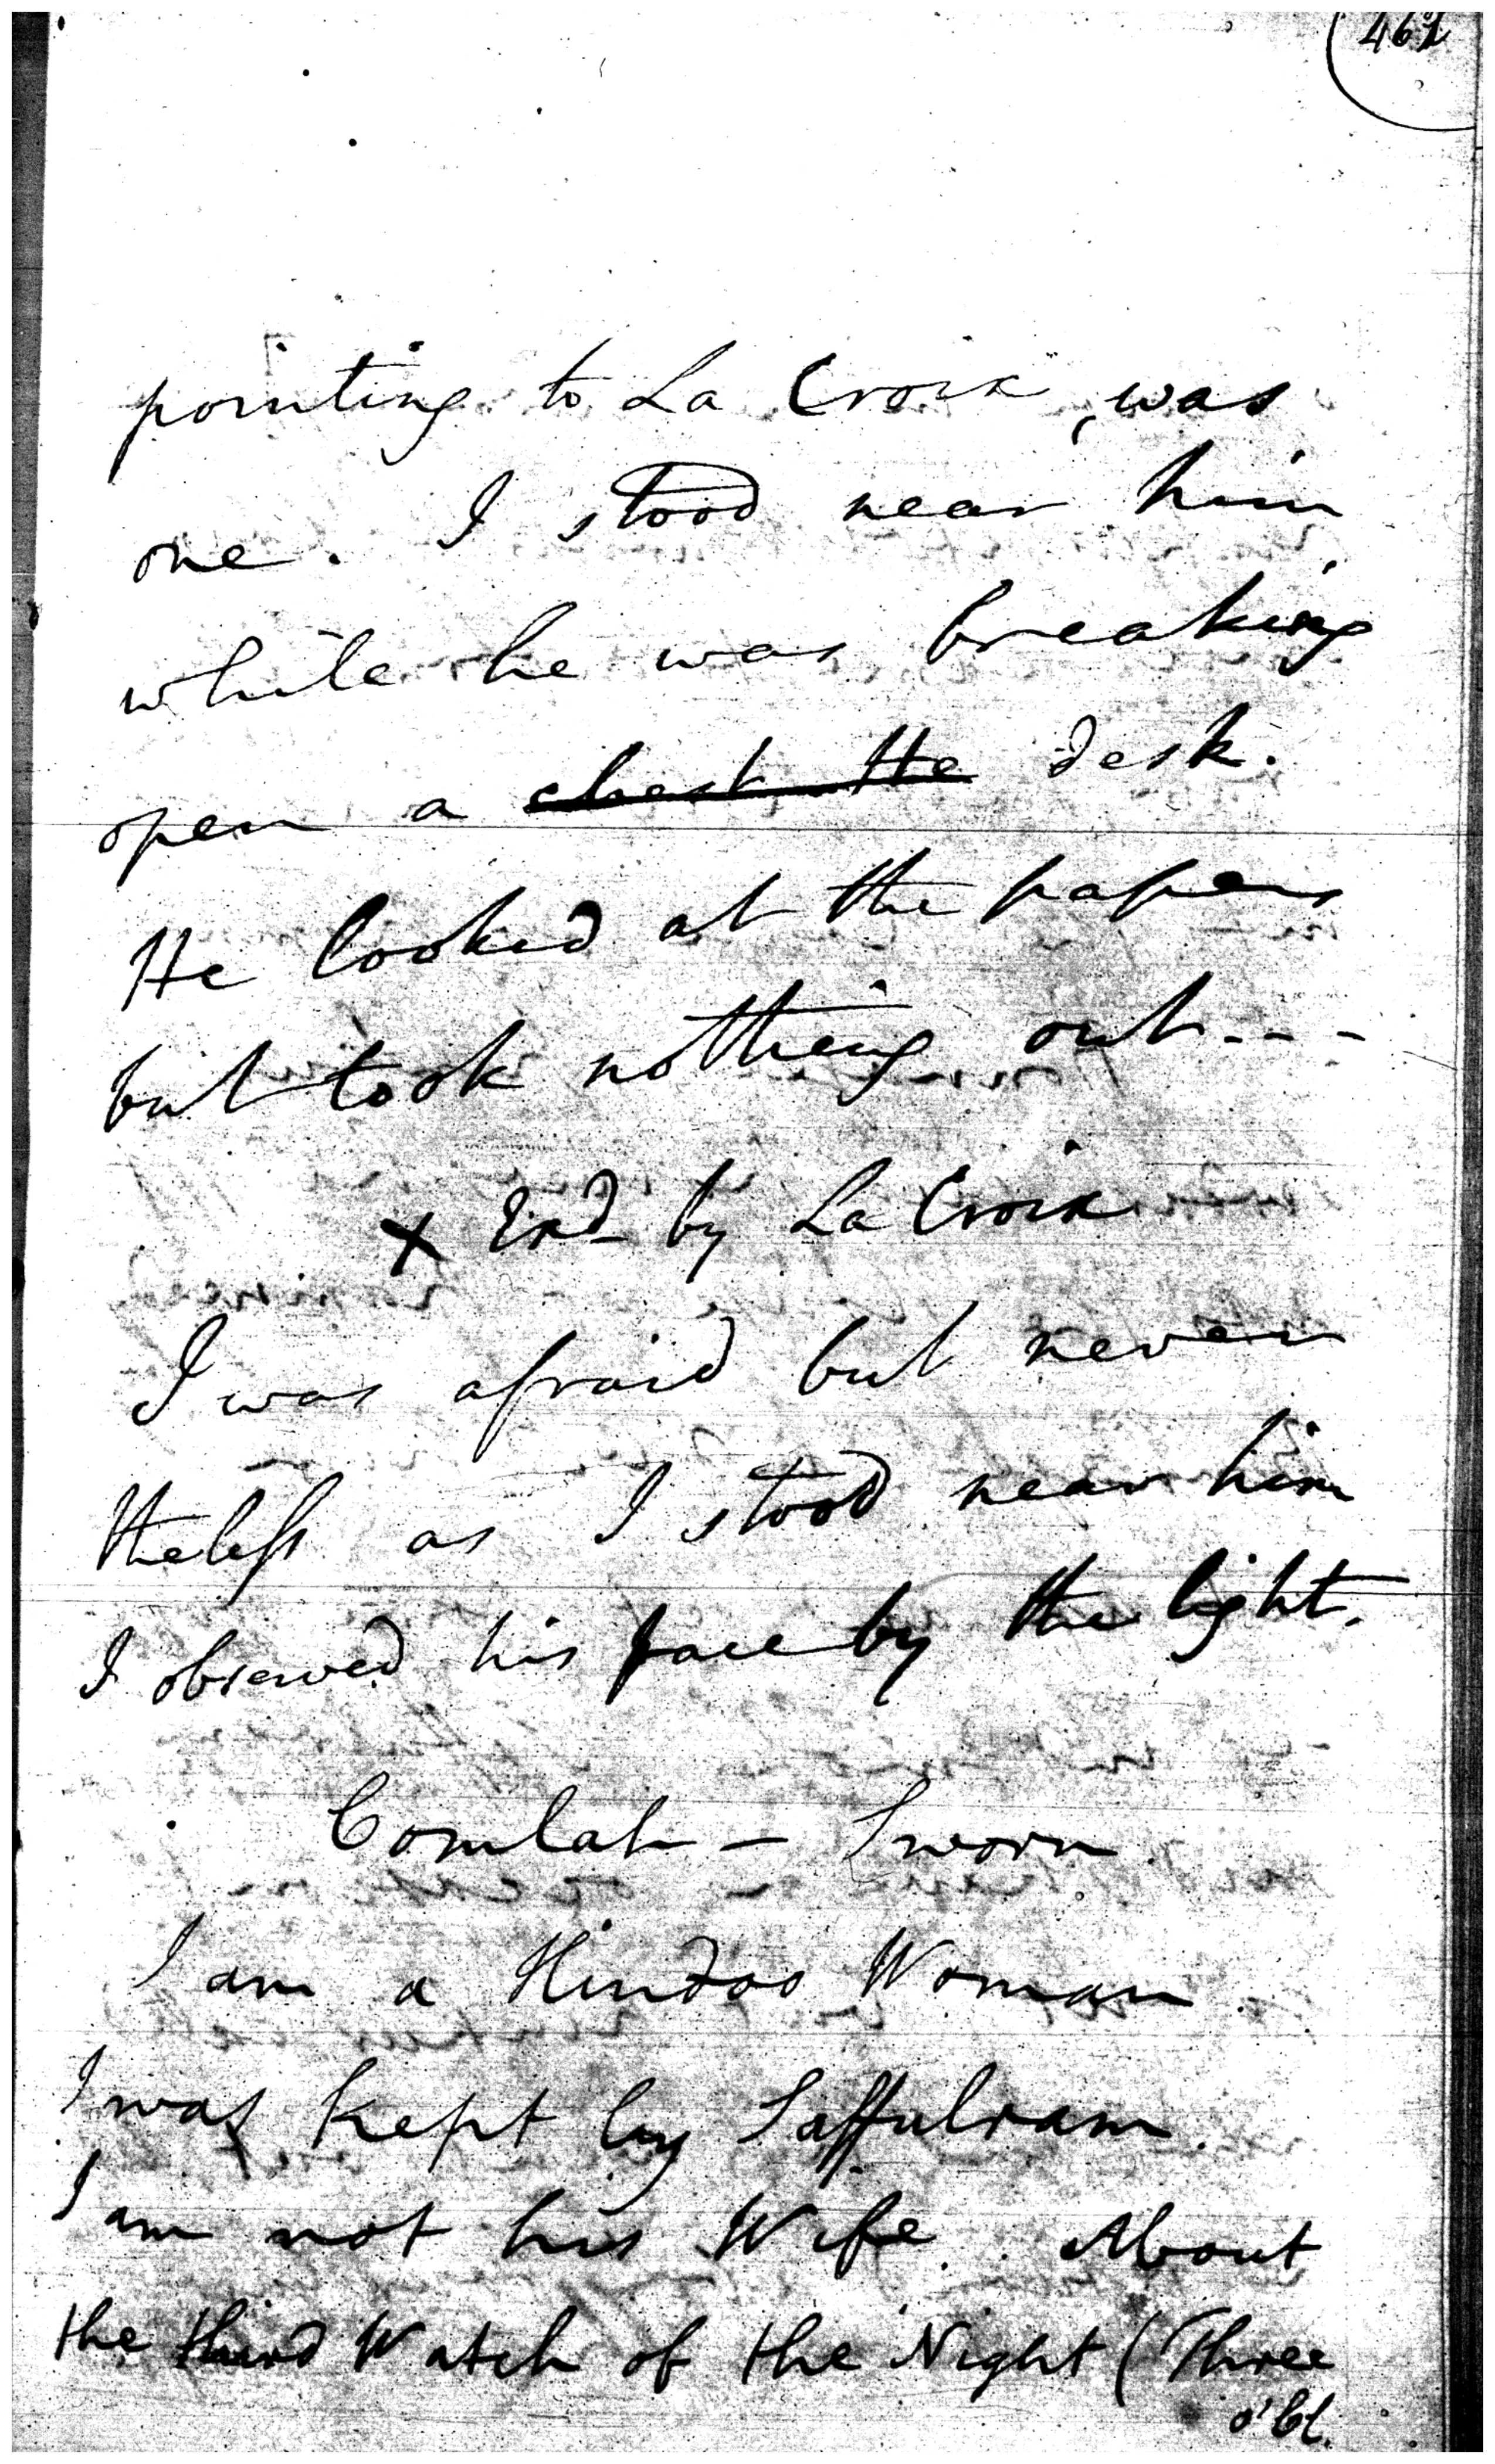 461
pointing to La Croix, was
one. I stood near him
while he was breaking
open a chest He desk.
He looked at the papers
but took nothing out - - -
x Exd by La Croix
I was afraid but never
theless as I stood near him
I observed his face by the light.
Comlah - Sworn
I am a Hindoo Woman
I was kept by Saffulram
I am not his Wife. About
the third Watch of the Night (Three
o'Cl.